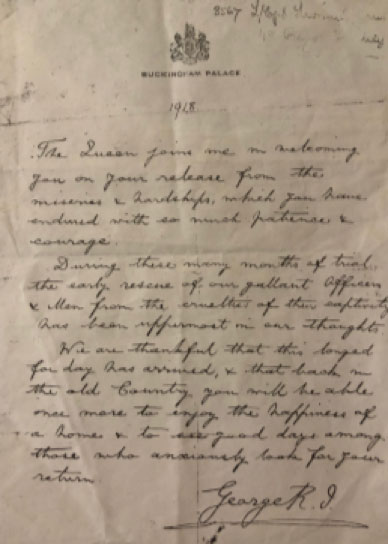 8567 L/Cpl
BUCKINGHAM PALACE
1918
The Queen joins me in welcoming
you on your release from the
miseries & hardships, which you have
endured with so much patience &
courage.
During these many months of trial
the early rescue of our gallant Officers
& Men from the cruelties of their captivity
has been uppermost in our thoughts.
We are thankful that this longed
for day has arrived, & that back in
the old Country you will be able
once more to enjoy the happiness of
a home & to see good days among
those who anxiously look for your
return.
George R.I.